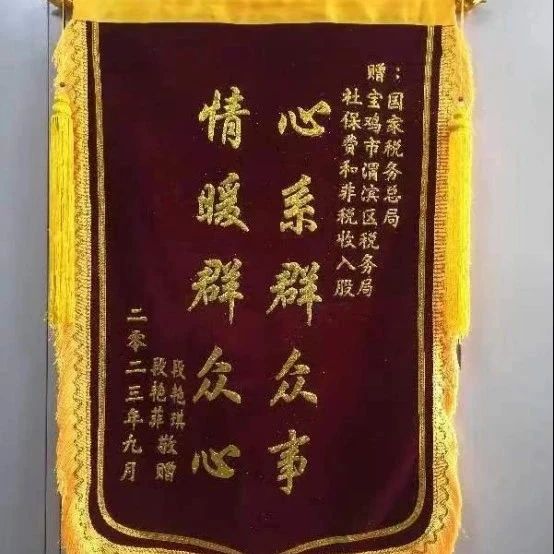 赠：国家税务总局
宝鸡市渭滨区税务局
社保费和非税收入股
心系群众事
情暖群众心
段艳琪
段艳菲 敬赠
二零二三年九月